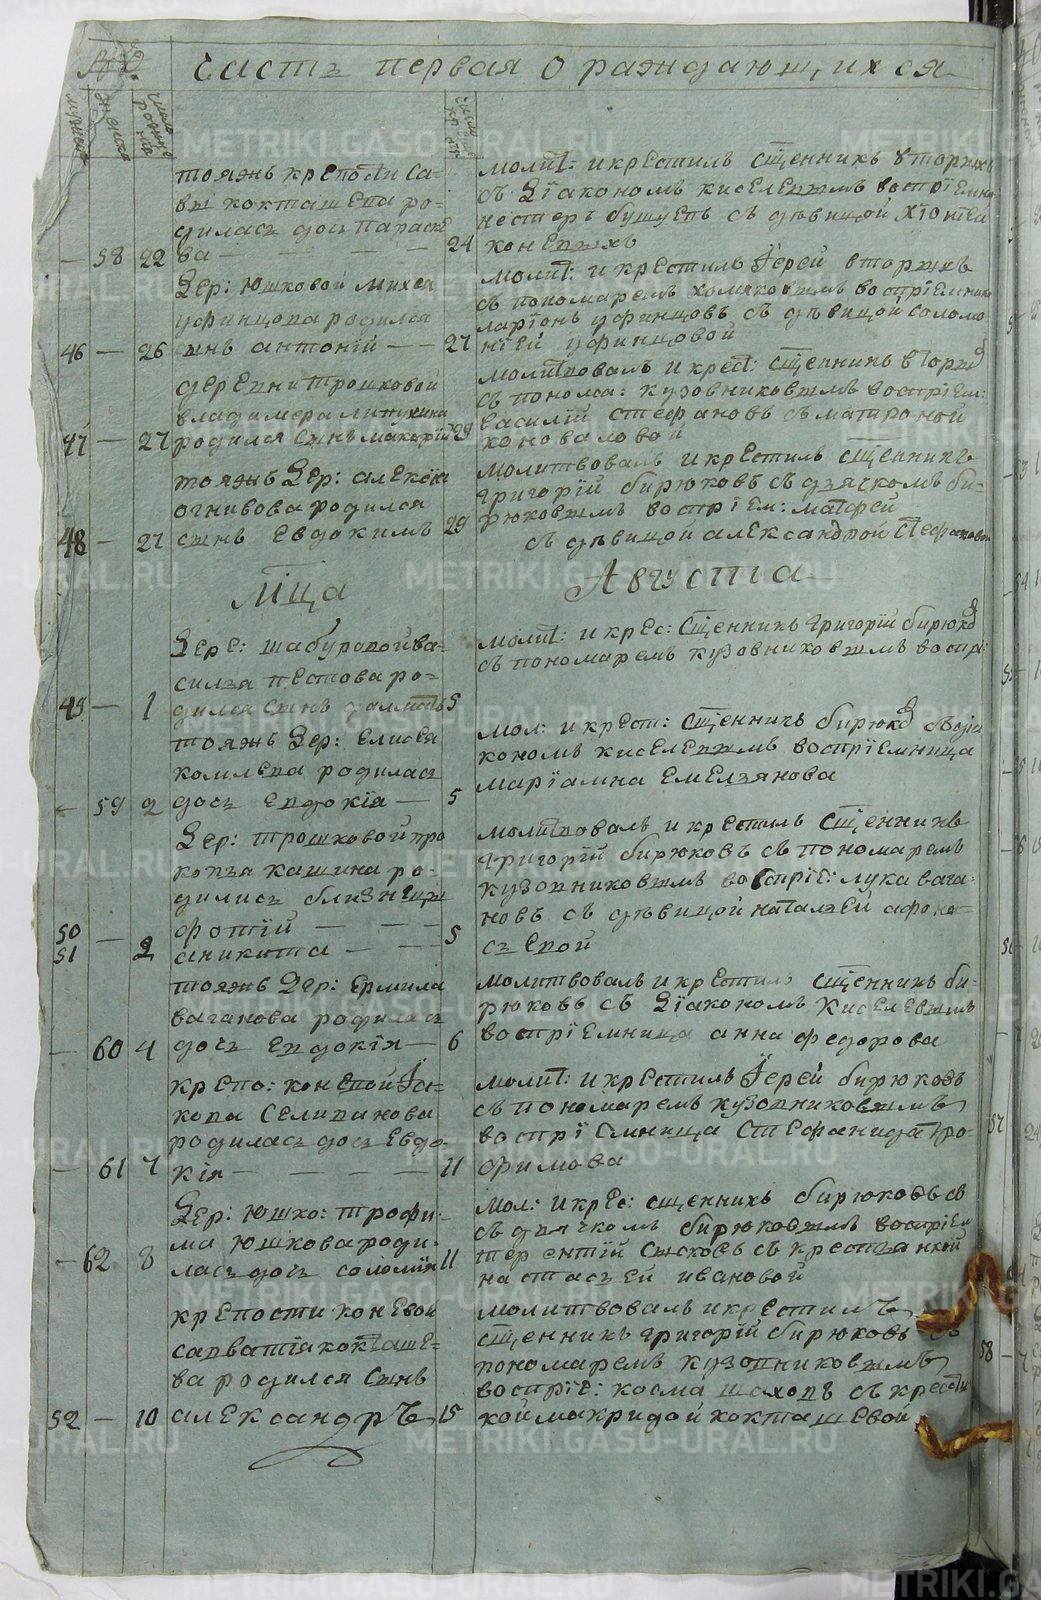 Часть первая о раждающихся
мужеска
женска
число рожденія
тояжь крепости Са-
вы кокташева ро-
дилась дочь Параске
58 22 ва — — — — 24
молит: и крестилъ сщенникъ вторыхъ
съ діакономъ киселевымъ воспріемни
несторъ бушуевъ съ девицой Хіоніей
коневыхъ
дер: Юшковой михея
уфинцова родился
46 — 26 сынъ антоній — — 27
молит: и крестилъ Іерей вторыхъ
съ пономаремъ хомяковымъ воспріемник
ларіонъ уфинцовъ съ девицой соломо
ніей уфинцовой
деревни трошковой
владимера липухина
47 — 27 родился сынъ макарій 29
молитвовалъ и крест: сщенникъ вторых
съ понома: кузовниковымъ воспріем:
василій стефановъ съ матроной
коноваловой
тояжь дер: алексѣя
огнивова родился
48 — 27 сынъ Евдокимъ 29
молитвовалъ и крестилъ сщенникъ
григорій бирюковъ съ дьячкомъ би-
рюковымъ воспріем: матфей
съ девицой александрой Стефановой
мца Августа
дере: шабуровой ва-
силья пестова ро-
49 — 1 дился сынъ 5
молит: и крес: Сщенникъ григорій бирюков
съ пономаремъ кузовниковымъ воспрі
тояжь дер: Елисея
копылова родилась
— 59 2 дочь Евдокіа — 5
мол: и крест: сщенникъ бирюков съ діа
кономъ киселевымъ воспріемница
маріамна Емельянова
дер: трошковой про
копья кашина ро-
дились близнецы
50 — фотій — — —
51 2 аникита — — — 5
молитвовалъ и крестилъ сщенникъ
григорій бирюковъ съ пономаремъ
кузовниковымъ воспріе: лука вага-
новъ съ девицой натальей афона-
сьевой
тояжь дер: Ермила
ваганова родилась
— 60 4 дочь Евдокія — 6
молитвовалъ и крестилъ сщенникъ би-
рюковъ съ діакономъ Киселевымъ
воспріемница анна федорова
крепо: коневой Іа-
кова Селиванова
родилась дочь Евдо-
— 61 7 кія — — — — 11
молит: и крестилъ Іерей бирюковъ
съ пономаремъ кузовниковымъ
воспріемница Стефанида тро-
фимова
дер: Юшко: трофи-
ма юшкова роди-
— 62 8 лась дочь соломія 11
мол: и крес: сщенникъ бирюковъ со
съ дьячкомъ бирюковымъ воспріем
терентій Сысковъ съ крестьянкой
настасьей ивановой
крепости коневой
савватія кокташе-
ва родился Сынъ
52 — 10 александръ 15
молитвовалъ и крестилъ
сщенникъ григорій бирюковъ съ
пономаремъ кузовниковымъ
воспріе: косма шаховъ съ крестьян
кой макридой кокташевой